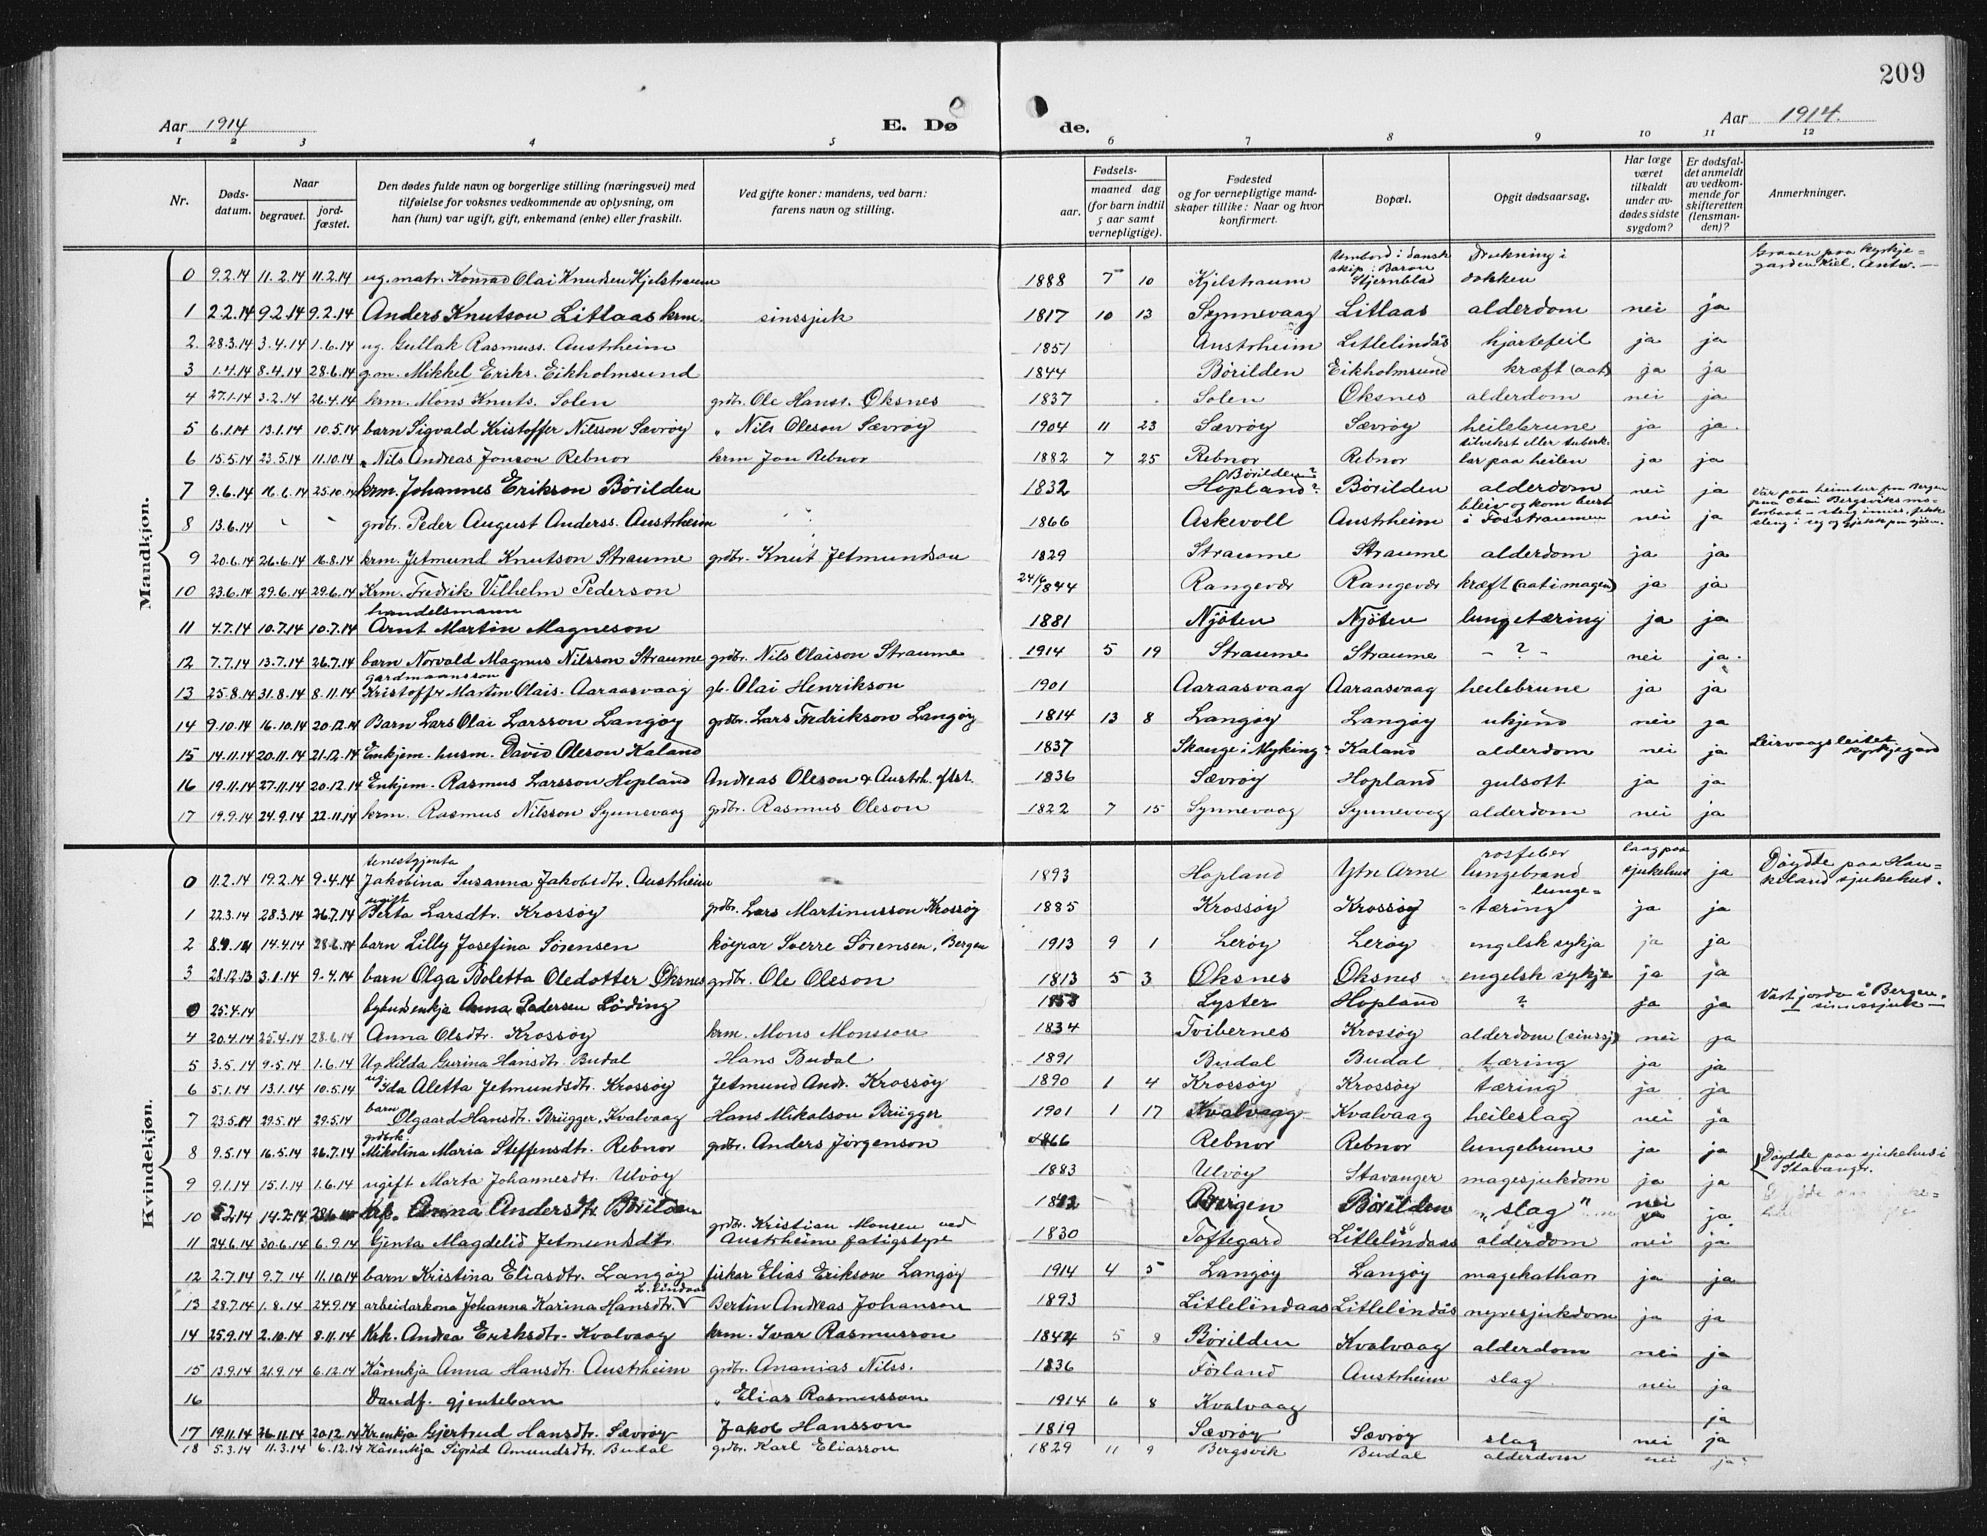 209
Aar 1914
E. Dø de.
Aar 1914.
1 2 3 4 5 6 7 8 9 10 11 12
Nr.
Døds-datum.
Naar
begravet.
jord-fæstet.
Den dødes fulde navn og borgerlige stilling (næringsvei) med tilføielse for voksnes vedkommende av oplysning, om han (hun) var ugift, gift, enkemand (enke) eller fraskilt.
Ved gifte koner: mandens, ved barn: farens navn og stilling.
Fødsels-
aar.
maaned dag (for barn indtil 5 aar samt vernepligtige).
Fødested og for vernepligtige mandskaper tillike: Naar og hvor konfirmert.
Bopæl.
Opgit dødsaarsag.
Har læge været tilkaldt under avdødes sidste sygdom?
Er dødsfaldet anmeldt av vedkommende for skifteretten (lensmanden)?
Anmerkninger.
Mandkjøn.
0 9.2.14 11.2.14 11.2.14 ug. matr. Konrad Olai Knudsen Kjelstraum 1888 7 10 Kjelstraum Umbord i dansk skip: Baron Stjernblad Drukning i dokken Graven paa kyrkjegarden Kiel, Antw.
1 2.2.14 9.2.14 9.2.14 Anders Knutson Litlaas krm. sinssjuk 1817 10 13 Synnevaag Litlaas alderdom nei ja
2. 28.3.14 3.4.14 1.6.14 ug. Gullak Rasmuss. Austrheim 1851 Austrheim Litlelindås hjartefeil ja ja
3 1.4.14 8.4.14 28.6.14 g.m. Mikkel Eriks. Eikholmsund 1844 Børilden Eikholmsund kræft (aat) ja ja
4 27.1.14 3.2.14 26.4.14 krm. Mons Knuts. Solen grdbr. Ole Hanss. Øksnes 1837 Solen Øksnes alderdom nei ja
5 6.1.14 13.1.14 10.5.14 barn Sigvald Kristoffer Nilsson Sævrøy " Nils Oleson Sævrøy 1904 11 23 Sævrøy Sævrøy heilebrune ja ja.
6 15.5.14 23.5.14 11.10.14 " Nils Andreas Jonson Rebnor krm Jon Rebnor 1882 7 25 Rebnor Rebnor silvekst eller tuberklar paa heilen ja ja
7 9.6.14 16.6.14 25.10.14 krm. Johannes Erikson Børilden 1832 Børilden? Hopland? Børilden alderdom nei ja
8 13.6.14 " " grdbr. Peder August Anderss. Austrheim 1866 Askevoll Austrheim bleiv og kom burt i Fosstraumen nei ja Var paa heimtur fraa Bergen paa Olai Bergsviks motorbaat
9 20.6.14 26.6.14 16.8.14 krm. Jetmund Knutson Straume grdbr. Knut Jetmundson 1829 Straume Straume alderdom ja ja
10 23.6.14 29.6.14 29.6.14 Krm. Fredrik Vilhelm Pederson 24/6 1844 Rangevær Rangevær kræft (aat i magen) ja ja
11 4.7.14 10.7.14 10.7.14 handelsmann Arnt Martin Magneson 1881 Njøten Njøten lungetæring ja ja
12 7.7.14 13.7.14 26.7.14 barn Norvald Magnus Nilsson Straume grdbr. Nils Olaison Straume 1914 5 19 Straume Straume - ? - nei ja.
13 25.8.14 31.8.14 8.11.14 gardmannsson Kristoffr Martin Olais. Aaraasvaag gb. Olai Henrikson 1901 Aaraasvaag Aaraasvaag heilebrune ja ja
14 9.10.14 16.10.14 20.12.14 Barn Lars Olai Larsson Langøy grdbr. Lars Fredrikson Langøy 1814 13 8 Langøy Langøy ukjend nei ja
15 14.11.14 20.11.14 21.12.14 Enkjem. husm. David Oleson Kaland 1837 Skauge i Myking? Kaland alderdom nei ja Leirvaagsleitet kyrkjegard
16 19.11.14 27.11.14 20.12.14 Enkjem. Rasmus Larsson Hopland Andreas Oleson & Austrh. ftst. 1836 Sævrøy Hopland gulsott ja ja
17 19.9.14 24.9.14 22.11.14 krm. Rasmus Nilsson Synnevaag grdbr. Rasmus Oleson 1822 7 15 Synnevaag Synnevaag alderdom nei ja
Kvindekjøn.
0 11.2.14 19.2.14 9.4.14 tenestgjenta Jakobina Susanna Jakobsdtr. Austrheim 1893 Hopland Ytre Arne rosfeber lungebrand laag paa sjukehus ja Døydde paa Haukeland sjukehus.
1 22.3.14 28.3.14 26.7.14 ugift Berta Larsdtr. Krossøy grdbr. Lars Martinusson Krossøy 1885 Krossøy Krossøy lunge-tæring ja ja
2 8.4.14 14.4.14 28.6.14 barn Lilly Josefina Sørensen Sverre Sørensen, Bergen 1913 9 1 Lerøy Lerøy engelsk sykja ja ja
3 28.12.13 3.1.14 9.4.14 barn Olga Boletta Oledotter Øksnes grdbr. Ole Oleson 1813 5 3 Øksnes Øksnes engelsk sykje ja ja
0 25.4.14 Anna Pedersen Løding 1853 Lyster Hopland ? ja ja Vart jorda i Bergen. sinnssjuk
4 20.4.14 25.4.14 28.6.14 Anna Olsdtr. Krossøy krm. Mons Monsson 1834 Tvibernes Krossøy alderdom (sinssj) nei ja
5 3.5.14 9.5.14 1.6.14 Ug Hilda Gurina Hansdtr. Budal Hans Budal 1891 Budal Budal tæring ja ja
6 5.1.14 13.1.14 10.5.14 ug. Ida Aletta Jetmundsdtr. Krossøy Jetmund Andr. Krossøy 1890 1 4 Krossøy Krossøy tæring ja ja
7 23.5.14 29.5.14 29.5.14 barn Olgaard Hansdtr. Brügger, Kvalvaag Hans Mikalson Brügger 1901 1 17 Kvalvaag Kvalvaag heileslag nei ja
8 9.5.14 16.5.14 26.7.14 grdbrk. Mikolina Maria Steffensdtr. Rebnor grdbr. Anders Jørgenson 1866 Rebnor Rebnor lungebrune ja ja
9 9.1.14 15.1.14 1.6.14 ugift Marta Johannesdtr. Ulvøy 1883 Ulvøy Stavanger magesjukdom ja ja Døydde paa sjukehus i Stavangr.
10 5.2.14 14.2.14 28.6.14 krk. Anna Andersdtr. Børilden Bergen Børilden "slag" nei ja
11 24.6.14 30.6.14 6.9.14 Gjenta Magdelid Jetmundsdtr. grdbr. Kristian Monsen ved Austrheim fatigstyre 1830 Toftegard Litlelindaas alderdom nei ja
12 2.7.14 9.7.14 11.10.14 barn Kristina Eliasdtr. Langøy fiskar Elias Erikson Langøy 1914 4 5 Langøy Langøy magekathar ja ja
13 28.7.14 1.8.14 24.9.14 arbeidarkona Johanna Karina Hansdtr. L. lindaas Bertin Andreas Johanson 1893 Litlelindaas Litlelindås nyresjukdom ja ja
14 25.9.14 2.10.14 8.11.14 Krk. Andrea Eriksdtr. Kvalvaag krm. Ivar Rasmusson 1844 5 8 Børilden Kvalvaag alderdom nei ja
15 13.9.14 21.9.14 6.12.14 Kårenkja Anna Hansdtr. Austrheim grdbr. Ananias Nilss. 1836 Førland Austrheim slag nei ja
16 Daudf. gjentebarn " Elias Rasmusson 1914 6 8 Kvalvaag ja
17 19.11.14 26.11.14 20.12.14 Krenkja Gjertrud Hansdtr. Sævrøy Jakob Hansson 1819 Sævrøy Sævrøy slag nei ja
18 5.3.14 11.3.14 6.12.14 Kårenkja Sigrid Amundsdtr. Budal grdbr. Karl Eliasson 1829 11 9 Bergsvik Budal alderdom nei ja